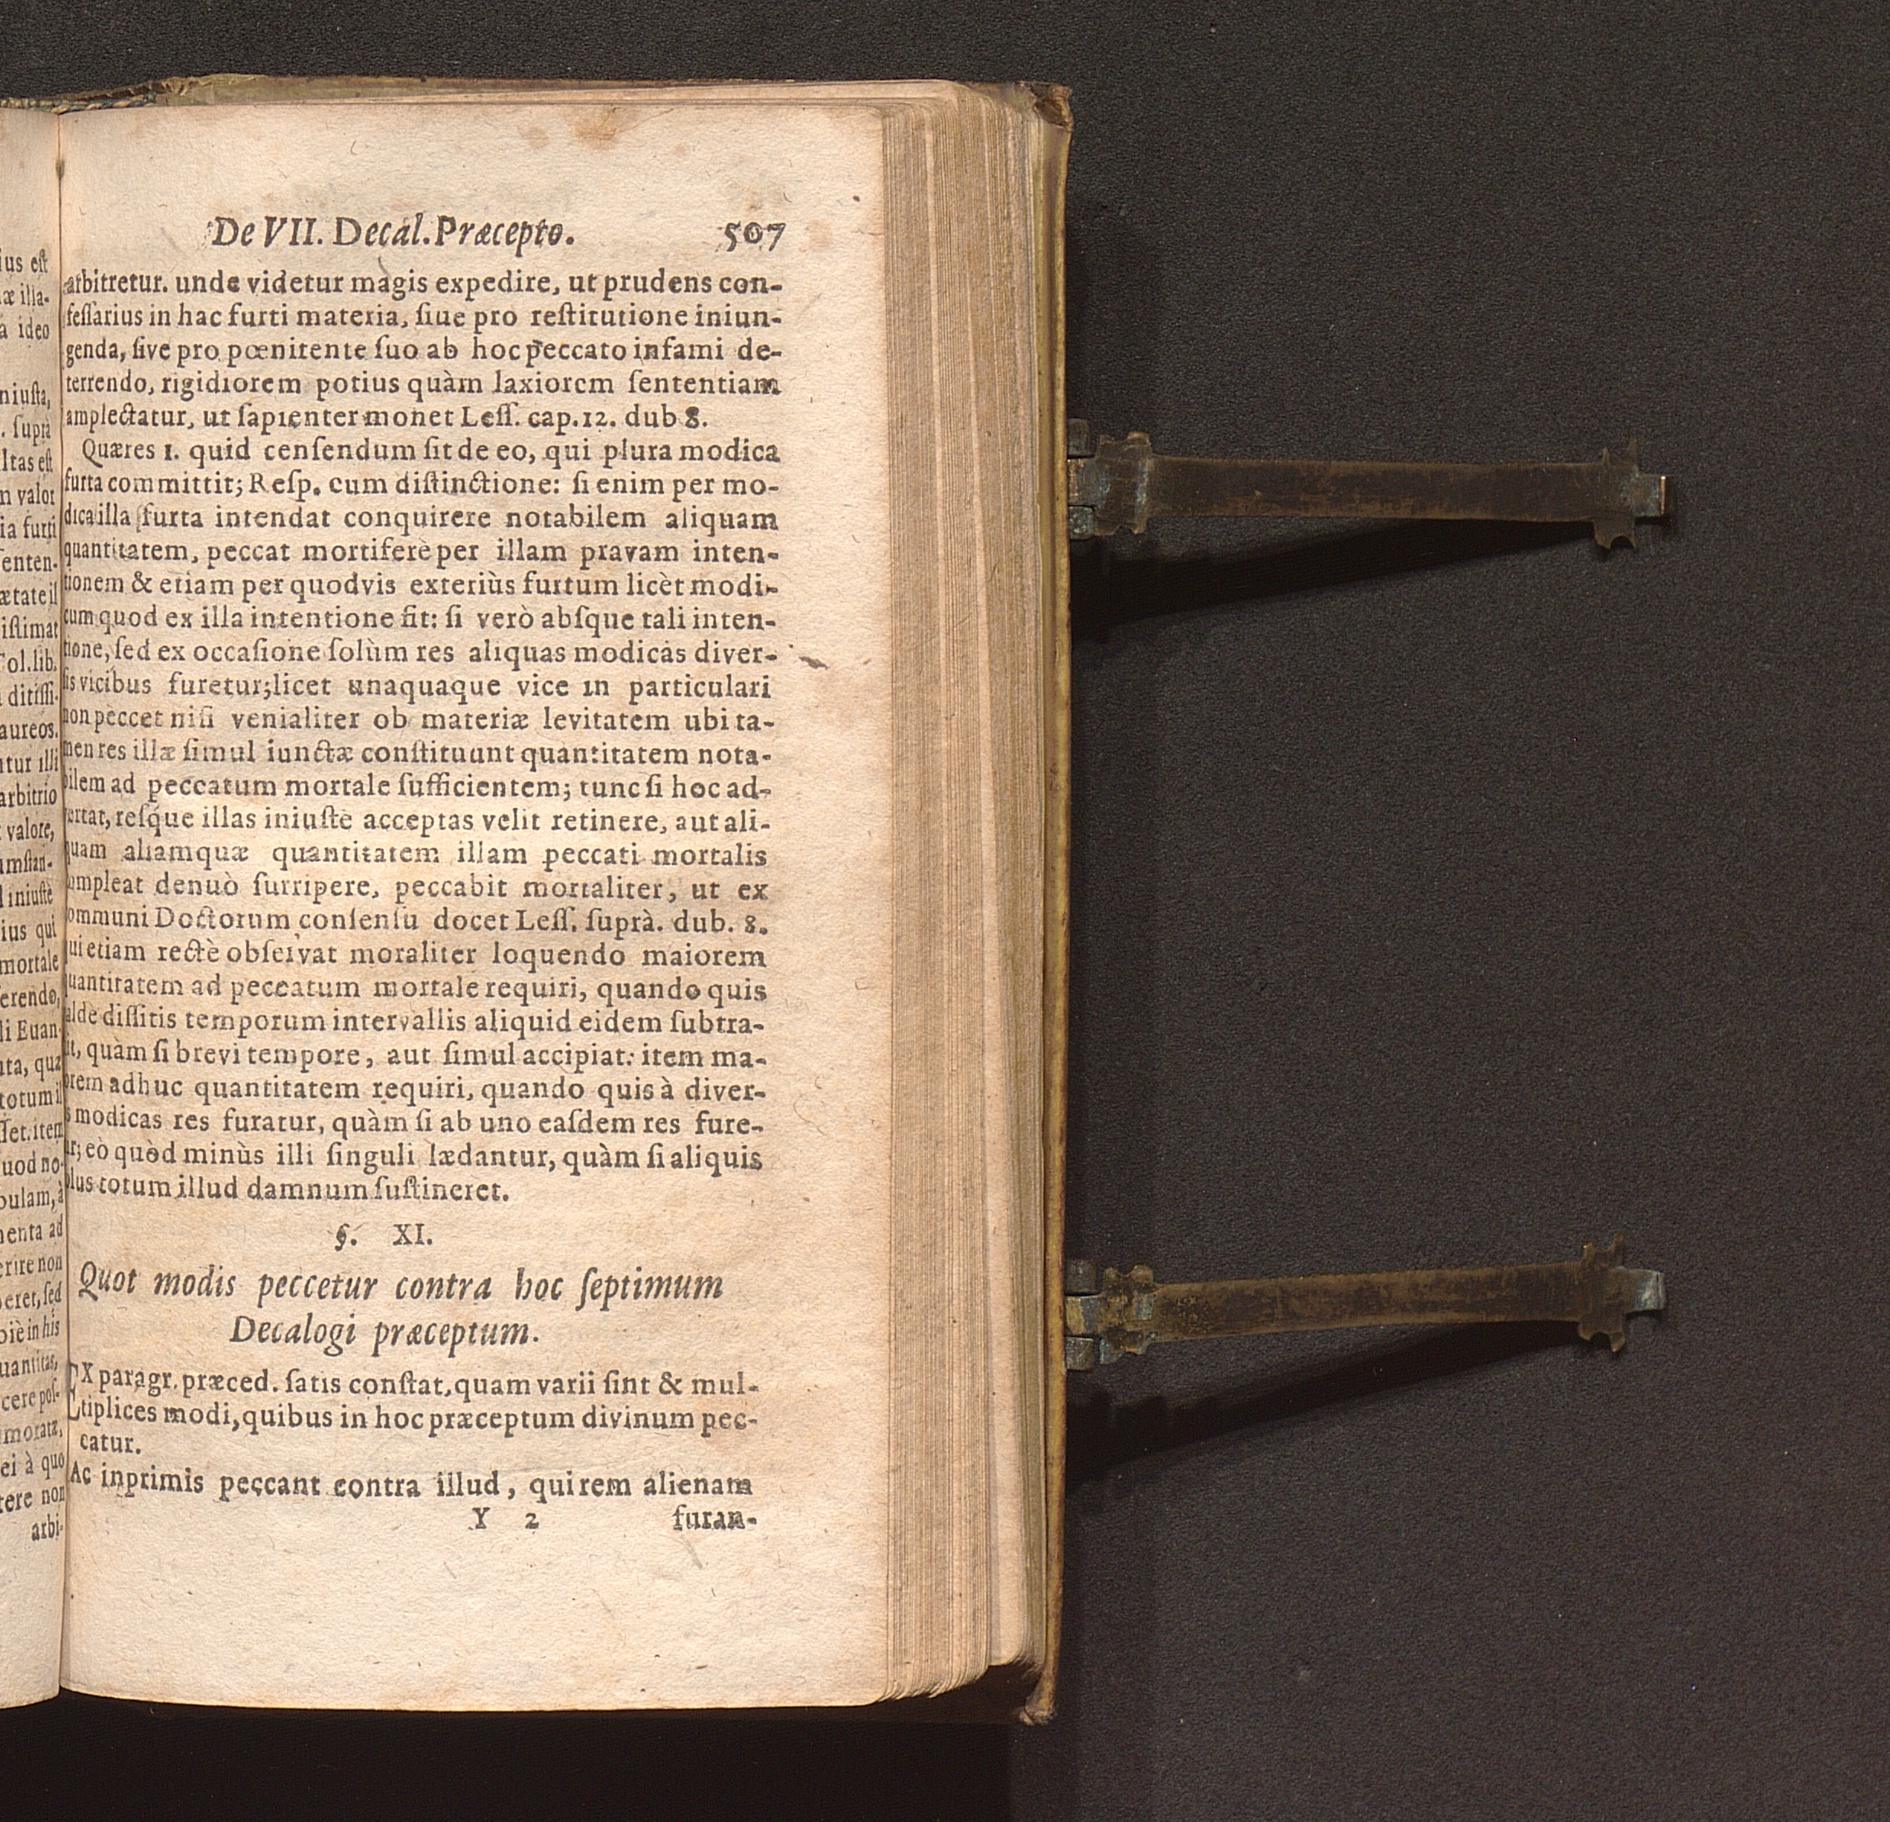 De VII. Decal. Præcepto. 507
arbitretur. unde videtur magis expedire, ut prudens con-
feſſarius in hac furti materia, ſiue pro reſtitutione iniun-
genda, ſive pro pœnitente ſuo ab hoc peccato infami de-
terrendo, rigidiorem potius quàm laxiorem ſententiam
amplectatur, ut ſapienter monet Leſſ. cap. 12. dub 8.
Quæres 1. quid cenſendum ſit de eo, qui plura modica
furta committit; Reſp. cum diſtinctione: ſi enim per mo-
dica illa furta intendat conquirere notabilem aliquam
quantitatem, peccat mortiferè per illam pravam inten-
tionem & etiam per quodvis exteriùs furtum licèt modi-
cum quod ex illa intentione fit: ſi verò abſque tali inten-
tione, ſed ex occaſione ſolùm res aliquas modicas diver-
ſis vicibus furetur; licet unaquaque vice in particulari
non peccet niſi venialiter ob materiæ levitatem ubi ta-
men res illæ ſimul iunctæ conſtituunt quantitatem nota-
bilem ad peccatum mortale ſufficientem; tunc ſi hoc ad-
vertat, reſque illas iniuſtè acceptas velit retinere, aut ali-
quam aliamquæ quantitatem illam peccati mortalis
ompleat denuò ſurripere, peccabit mortaliter, ut ex
ommuni Doctorum conſenſu docet Leſſ. ſuprà. dub. 8.
qui etiam rectè obſervat moraliter loquendo maiorem
quantitatem ad peccatum mortale requiri, quando quis
alde diſſitis temporum intervallis aliquid eidem ſubtra-
it, quàm ſi brevi tempore, aut ſimul accipiat: item ma-
orem adhuc quantitatem requiri, quando quis à diver-
s modicas res furatur, quàm ſi ab uno eaſdem res fure-
ur; eò quòd minùs illi ſinguli lædantur, quàm ſi aliquis
olus totum illud damnum ſuſtineret.
§. XI.
Quot modis peccetur contra hoc ſeptimum
Decalogi præceptum.
EX paragr. præced. ſatis conſtat, quam varii ſint & mul-
tiplices modi, quibus in hoc præceptum divinum pec-
catur.
Ac inprimis peccant contra illud, qui rem alienam
Y 2 furan-